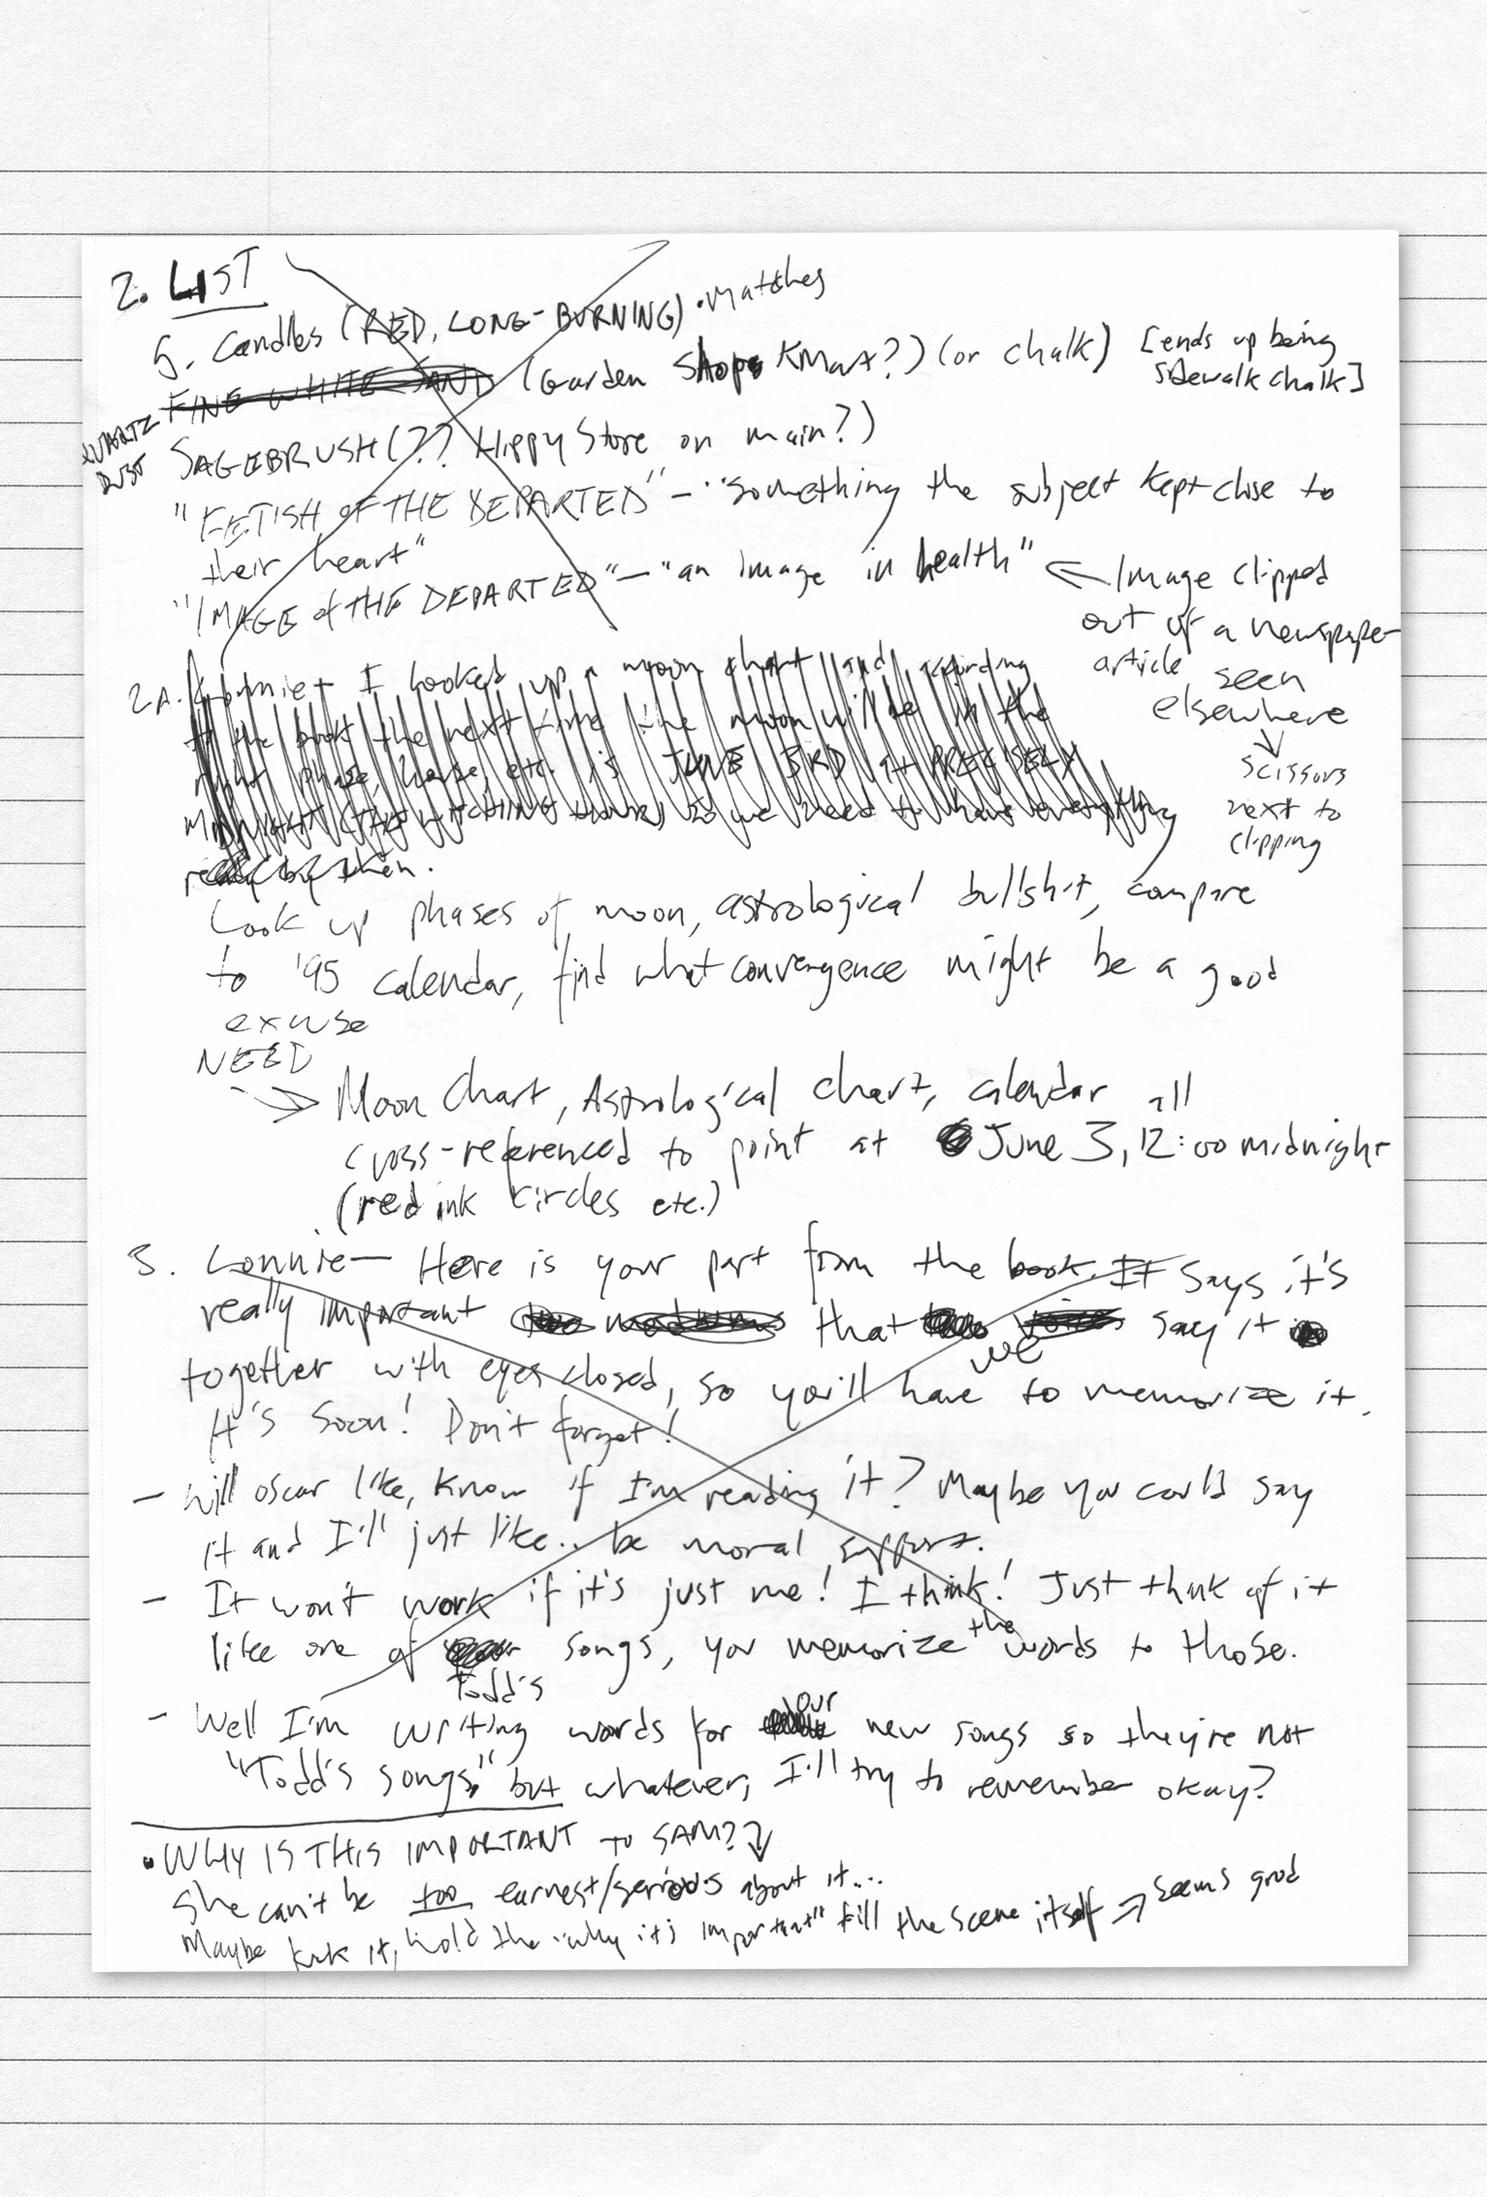 2. LIST
5. Candles (RED, LONG-BURNING) • Matches
FINE WHITE SAND (Garden Shop KMart?) (or chalk) [ends up being
sidewalk chalk]
QUARTZ
DUST
SAGEBRUSH (?? Hippy Store on main?)
"FETISH OF THE DEPARTED" - "something the subject kept close to
their heart"
"IMAGE of THE DEPARTED" - "an image in health" ← Image clipped
out of a newspaper
article seen
elsewhere
↓
scissors
next to
clipping
2A. Lonnie - I looked up a moon chart and according
to the book the next time the moon will be in the
right phase, house, etc. is JUNE 3RD at PRECISELY
MIDNIGHT (THE WITCHING HOUR) so we need to have everything
ready by then.
Look up phases of moon, astrological bullshit, compare
to '95 calendar, find what convergence might be a good
excuse
NEED
→ Moon Chart, Astrological chart, calendar all
cross-referenced to point at June 3, 12:00 midnight
(red ink circles etc.)
3. Lonnie - Here is your part from the book. It says it's
really important that we say it
together with eyes closed, so you'll have to memorize it.
It's soon! Don't forget!
- Will oscar like, know if I'm reading it? Maybe you could say
it and I'll just like.. be moral support.
- It won't work if it's just me! I think! Just think of it
like one of Todd's songs, you memorize the words to those.
- Well I'm writing words for our new songs so they're not
"Todd's songs," but whatever, I'll try to remember okay?
• WHY IS THIS IMPORTANT to SAM? ↓
She can't be too earnest/serious about it...
Maybe kick it, hold the "why it's important" till the scene itself → seems good